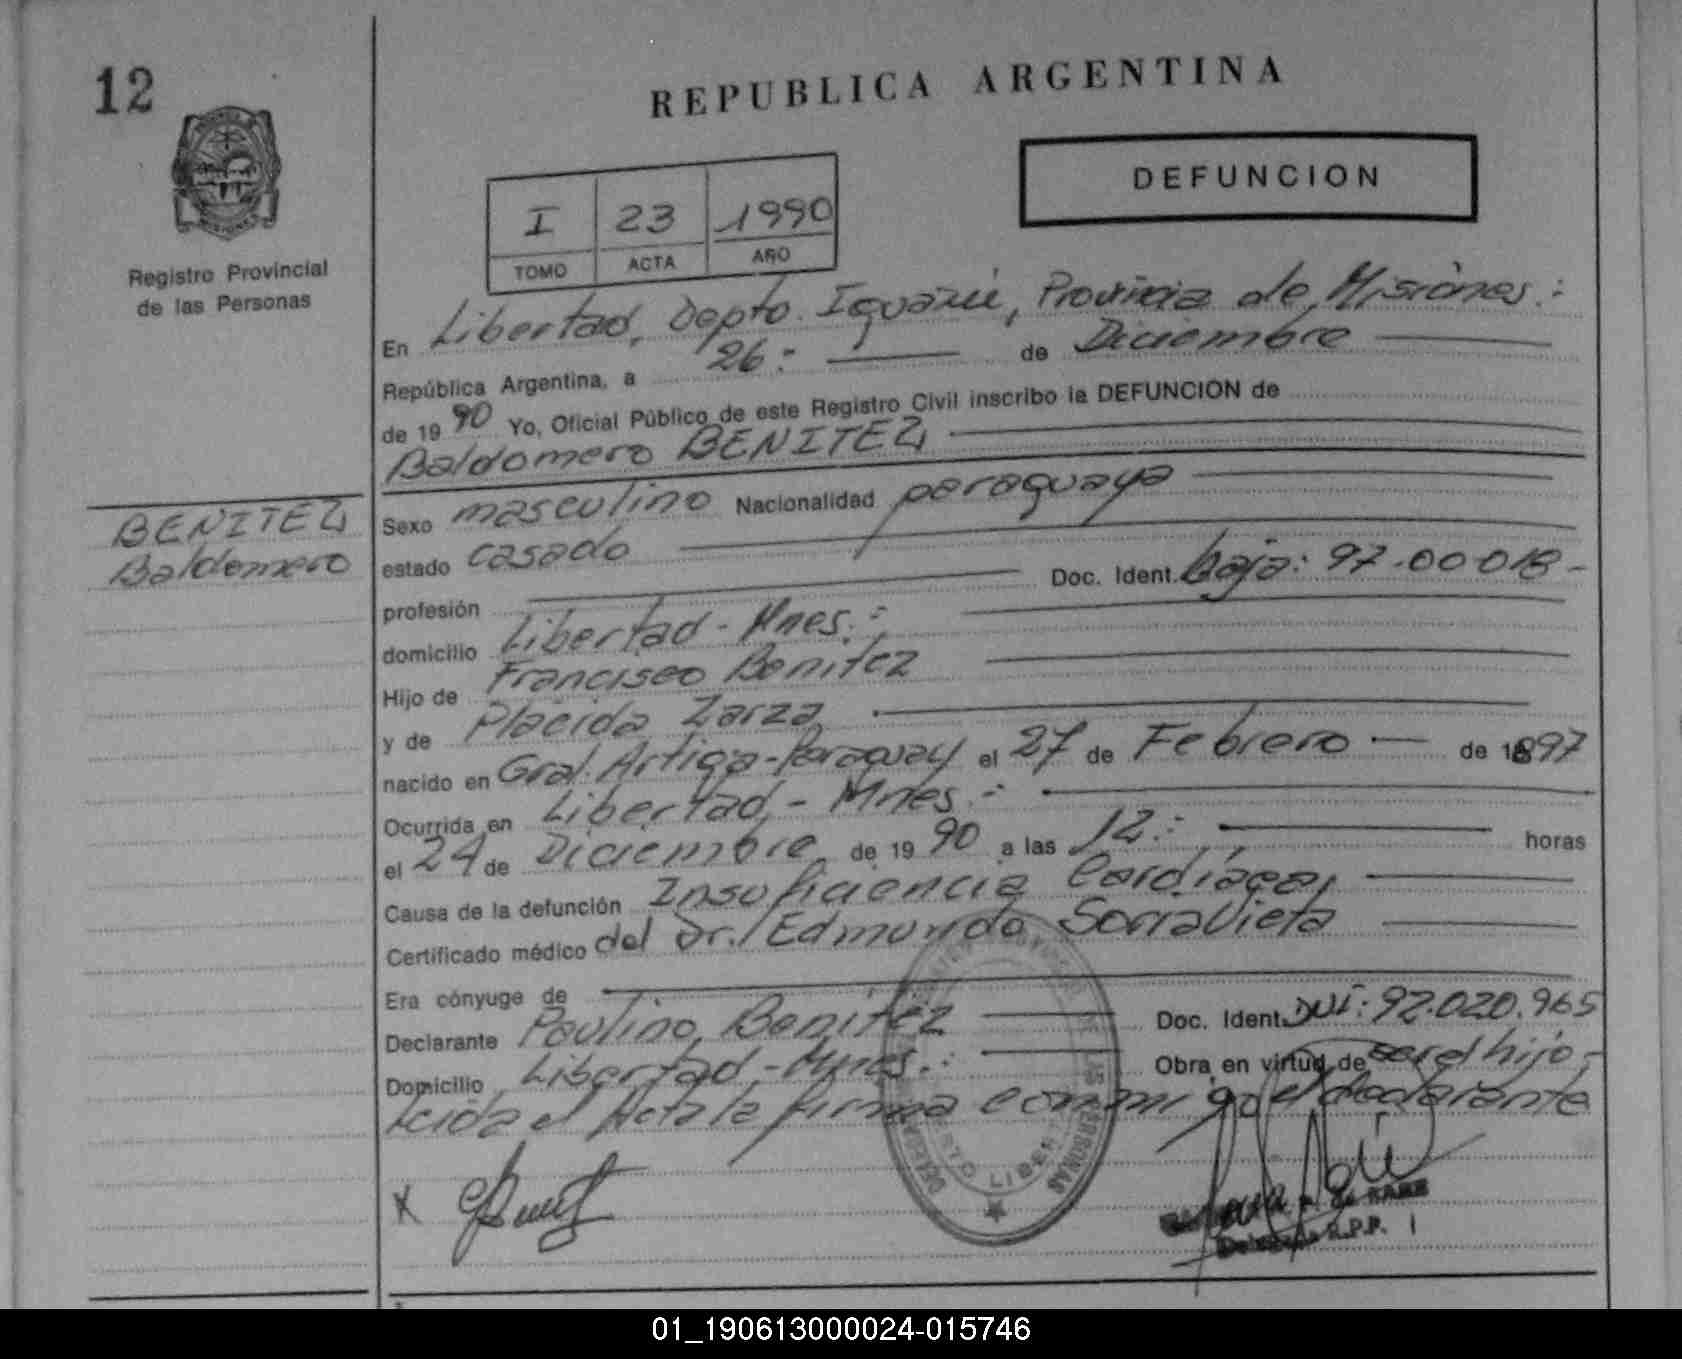 12
REPUBLICA ARGENTINA
DEFUNCION
I 23 1990
TOMO ACTA AÑO
Registro Provincial
de las Personas
En Libertad, Depto. Iguazú, Provincia de Misiones.:
República Argentina, a 26: de Diciembre
de 1990 Yo, Oficial Público de este Registro Civil inscribo la DEFUNCION de
Baldomero BENITEZ
BENITEZ
Baldomero
Sexo masculino Nacionalidad paraguaya
estado casado
profesión Doc. Ident. baja: 97.00018-
domicilio Libertad - Mnes.:
Hijo de Francisco Benitez
y de Placida Zarza
nacido en Gral. Artiga - Paraguay el 27 de Febrero de 1897
Ocurrida en Libertad - Mnes.:
el 24 de Diciembre de 1990 a las 12.: horas
Causa de la defunción Insuficiencia Cardíaca,
Certificado médico del Dr. Edmundo Sorravieta
Era cónyuge de
Declarante Paulino Benitez Doc. Ident. DNI: 92.020.965
Domicilio Libertad - Mnes.: Obra en virtud de ser el hijo,-
Leida el Acta la firma conmigo el declarante
X
de
R.P.P.
01_190613000024-015746